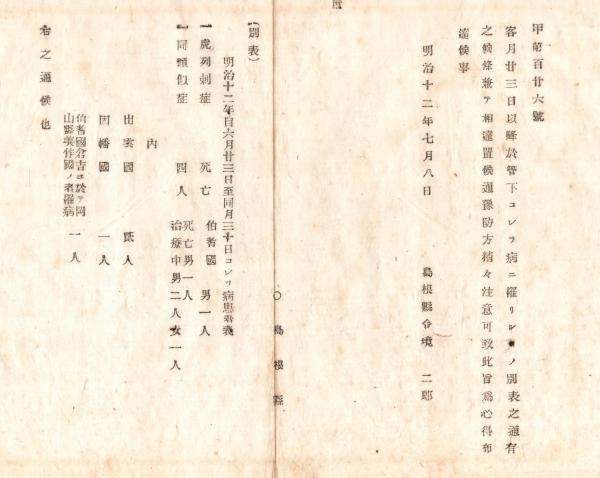 甲第百廿六號
客月廿三日以降於管下コレラ病ニ罹リシ者ノ別表之通有
之候條兼テ相達置候通豫防方精々注意可致此旨爲心得布
達候事
明治十二年七月八日　島根縣令境　二郎
○島根縣
(別表)
明治十二年自六月廿三日至同月三十日コレラ病患者表
一虎列刺症　死亡　伯耆國　男一人
一同類似症　四人　死亡男一人
治療中男二人女一人
内
出雲國　貮人
因幡國　一人
伯耆國倉吉ニ於テ岡
山縣美作國ノ者罹病　一人
右之通候也